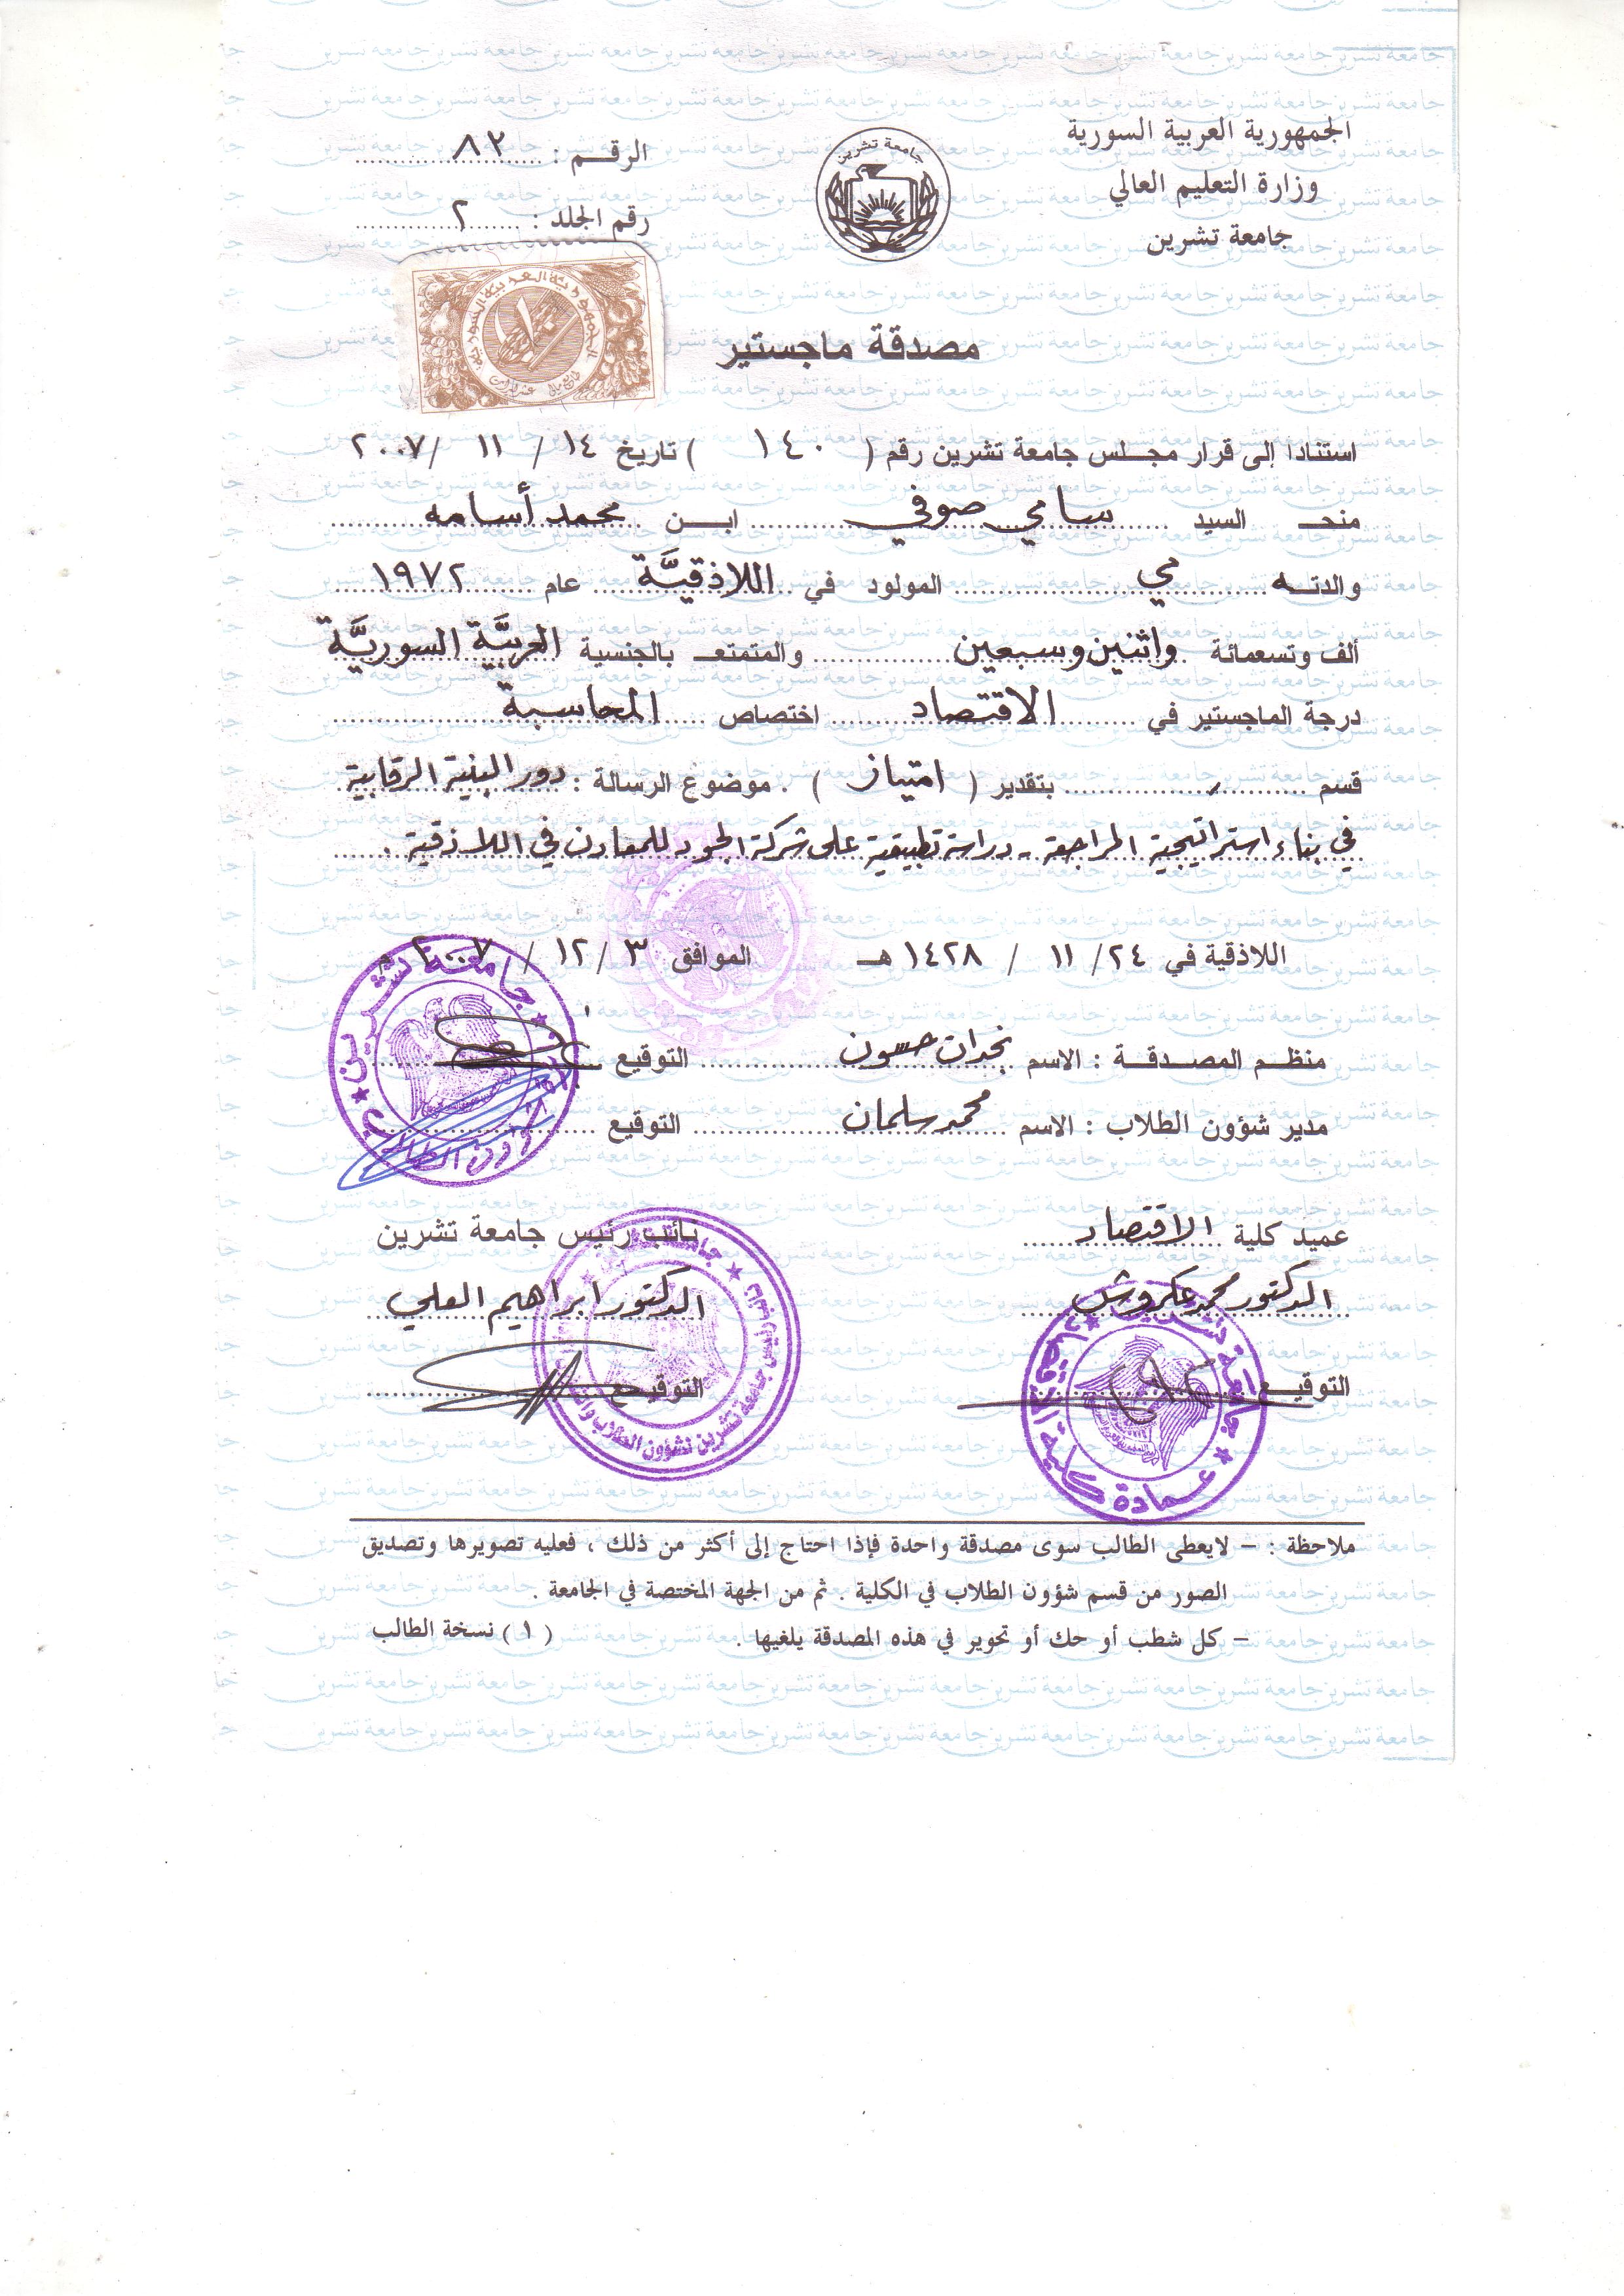 الجمهورية العربية السورية
وزارة التعليم العالي
جامعة تشرين
جامعة تشرين
الرقــم : ٨٢
رقم الجلد : ٢
الجمهورية العربية السورية
مصدقة ماجستير
استنادا إلى قرار مجلس جامعة تشرين رقم ( ١٤٠ ) تاريخ ١٤ / ١١ / ٢٠٠٧
منح السيد سامي صوفي ابن محمد أسامه
والدته مي المولود في اللاذقيَّة عام ١٩٧٢
ألف وتسعمائة واثنين وسبعين والمتمتع بالجنسية العربيَّة السوريَّة
درجة الماجستير في الاقتصاد اختصاص المحاسبة
قسم بتقدير ( امتياز ) . موضوع الرسالة : دور البنية الرقابية
في بناء استراتيجية المراجعة - دراسة تطبيقية على شركة الجود للمعادن في اللاذقية .
اللاذقية في ٢٤ / ١١ / ١٤٢٨ هـ الموافق ٣ / ١٢ / ٢٠٠٧ م
منظم المصدقة : الاسم نجدات حسون التوقيع
مدير شؤون الطلاب : الاسم محمد سلمان التوقيع
جامعة تشرين
شؤون الطلاب
عميد كلية الاقتصاد
الدكتور محمد عكروش
التوقيع
جامعة تشرين
عمادة كلية الاقتصاد
نائب رئيس جامعة تشرين
الدكتور ابراهيم العلي
التوقيع
جامعة تشرين لشؤون الطلاب
ملاحظة : – لايعطى الطالب سوى مصدقة واحدة فإذا احتاج إلى أكثر من ذلك ، فعليه تصويرها وتصديق
الصور من قسم شؤون الطلاب في الكلية . ثم من الجهة المختصة في الجامعة .
– كل شطب أو حك أو تحوير في هذه المصدقة يلغيها .
( ١ ) نسخة الطالب